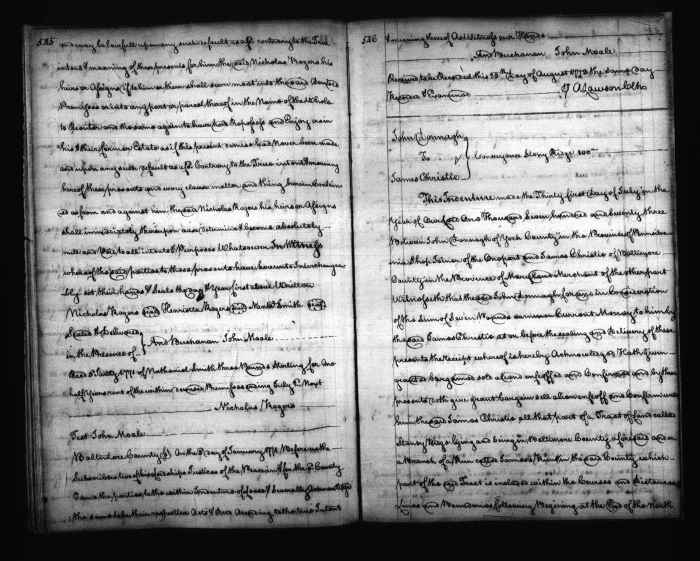 535
and may be lawfull upon any such default as afd contrary to the True
intent & meaning of these presents for him the said Nicholas Rogers his
heirs or Assigns if to him or them shall seem meet into the said demised
Premisses or into any part or parcel thereof in the Name of the Whole
to Reenter and the same again to have hold Repossess and Enjoy as in
his & their former Estate as if this present demise had Never been made
and upon any such default as afd Contrary to the True intent & meaning
hereof these presents and every clause matter and thing herein contain
ed as from and against him the said Nicholas Rogers his heirs or Assigns
shall immediately thereupon cease determine & become absolutely
null and Void to all intents & Purposes Whatsoever In Witness
whereof the said parties to these presents have hereunto Interchangea
bly set their hands & Seals the day & year first above Written
Nicholas Rogers seal Henrietta Rogers seal Nathl Smith seal
Sealed & Delivered
in the Presence of And Buchanan John Moale
Recd July 1771 of Nathaniel Smith three Pounds Sterling for One
half years rent of the within demised Premisses ending July Next
Nicholas Rogers
Test John Moale
Baltimore County On the Day of January 1771 Before us the
Subscribers two of his Lordships Justices of the Peace in & for the sd County
Came the parties to the within Indenture of Lease & severally Acknowledged
the same to be their respective Acts & Deed According to the true Intent
536
& meaning thereof As Witness our Hands
And Buchanan John Moale
Received to be Recorded this 25th Day of August 1773 the Same Day
Recorded & Examined
A Lawson Clk
John Donnagh
To
James Christie
Conveyance Stony Ridge 100
This Indenture made the Thirty first day of July in the
Year of our Lord One Thousand Seven hundred and seventy three
Between John Donnagh of York County in the Province of Pennsilva
nia of the One part and James Christie of Baltimore
County in the Province of Maryland Merchant of the other part
Witnesseth that the said John Donnagh for and in Consideration
of the Sum of Seven Pounds common Current Money to him by
the said James Christie at or before the sealing and Delivery of these
presents the Receipt whereof is hereby Acknowledged Hath Given
granted bargained sold aliened enfeoffed and Confirmed and by these
presents doth give grant bargain sell alien enfeoff and Confirm unto
him the said James Christie all that part of a Tract of Land called
Stoney Ridge lying and being in Baltimore County aforesaid and on
a Branch of a Run called James's Run in the said County which
part of the said Tract is included within the Courses and Distances
Lines and Boundaries following Begining at the End of the North